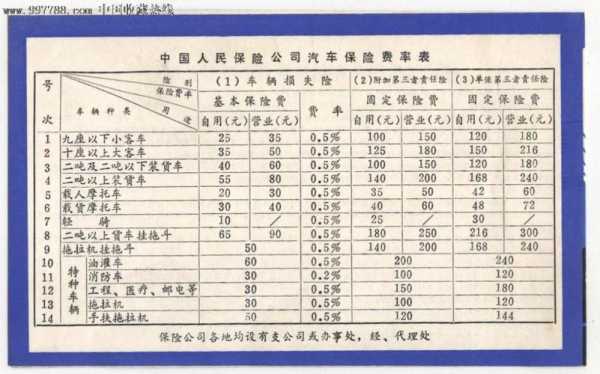 www.997788.com 中国收藏热线
中国人民保险公司汽车保险费率表
号次 险别 保险费率 用途 车辆种类 (1) 车辆损失险 (2)附加第三者责任险 (3)单保第三者责任险
基本保险费 费率 固定保险费 固定保险费
自用(元) 营业(元) 自用(元) 营业(元) 自用(元) 营业(元)
1 九座以下小客车 25 35 0.5% 100 150 120 180
2 十座以上大客车 35 50 0.5% 125 180 150 216
3 二吨及二吨以下装货车 40 60 0.5% 100 150 120 180
4 二吨以上装货车 55 80 0.5% 140 200 168 240
5 载人摩托车 20 30 0.5% 35 50 42 60
6 载货摩托车 30 40 0.5% 40 60 48 72
7 轻骑 10 / 0.5% 25 / 30 /
8 二吨以上货车挂拖斗 65 90 0.5% 180 250 216 300
9 拖拉机挂拖斗 50 0.5% 140 200 168 240
特种车辆
10 油灌车 60 0.5% 200 240
11 消防车 30 0.2% 100 120
12 工程、医疗、邮电等 30 0.5% 150 180
13 拖拉机 30 0.5% 100 120
14 手扶拖拉机 50 0.5% 120 144
保险公司各地均设有支公司或办事处，经、代理处